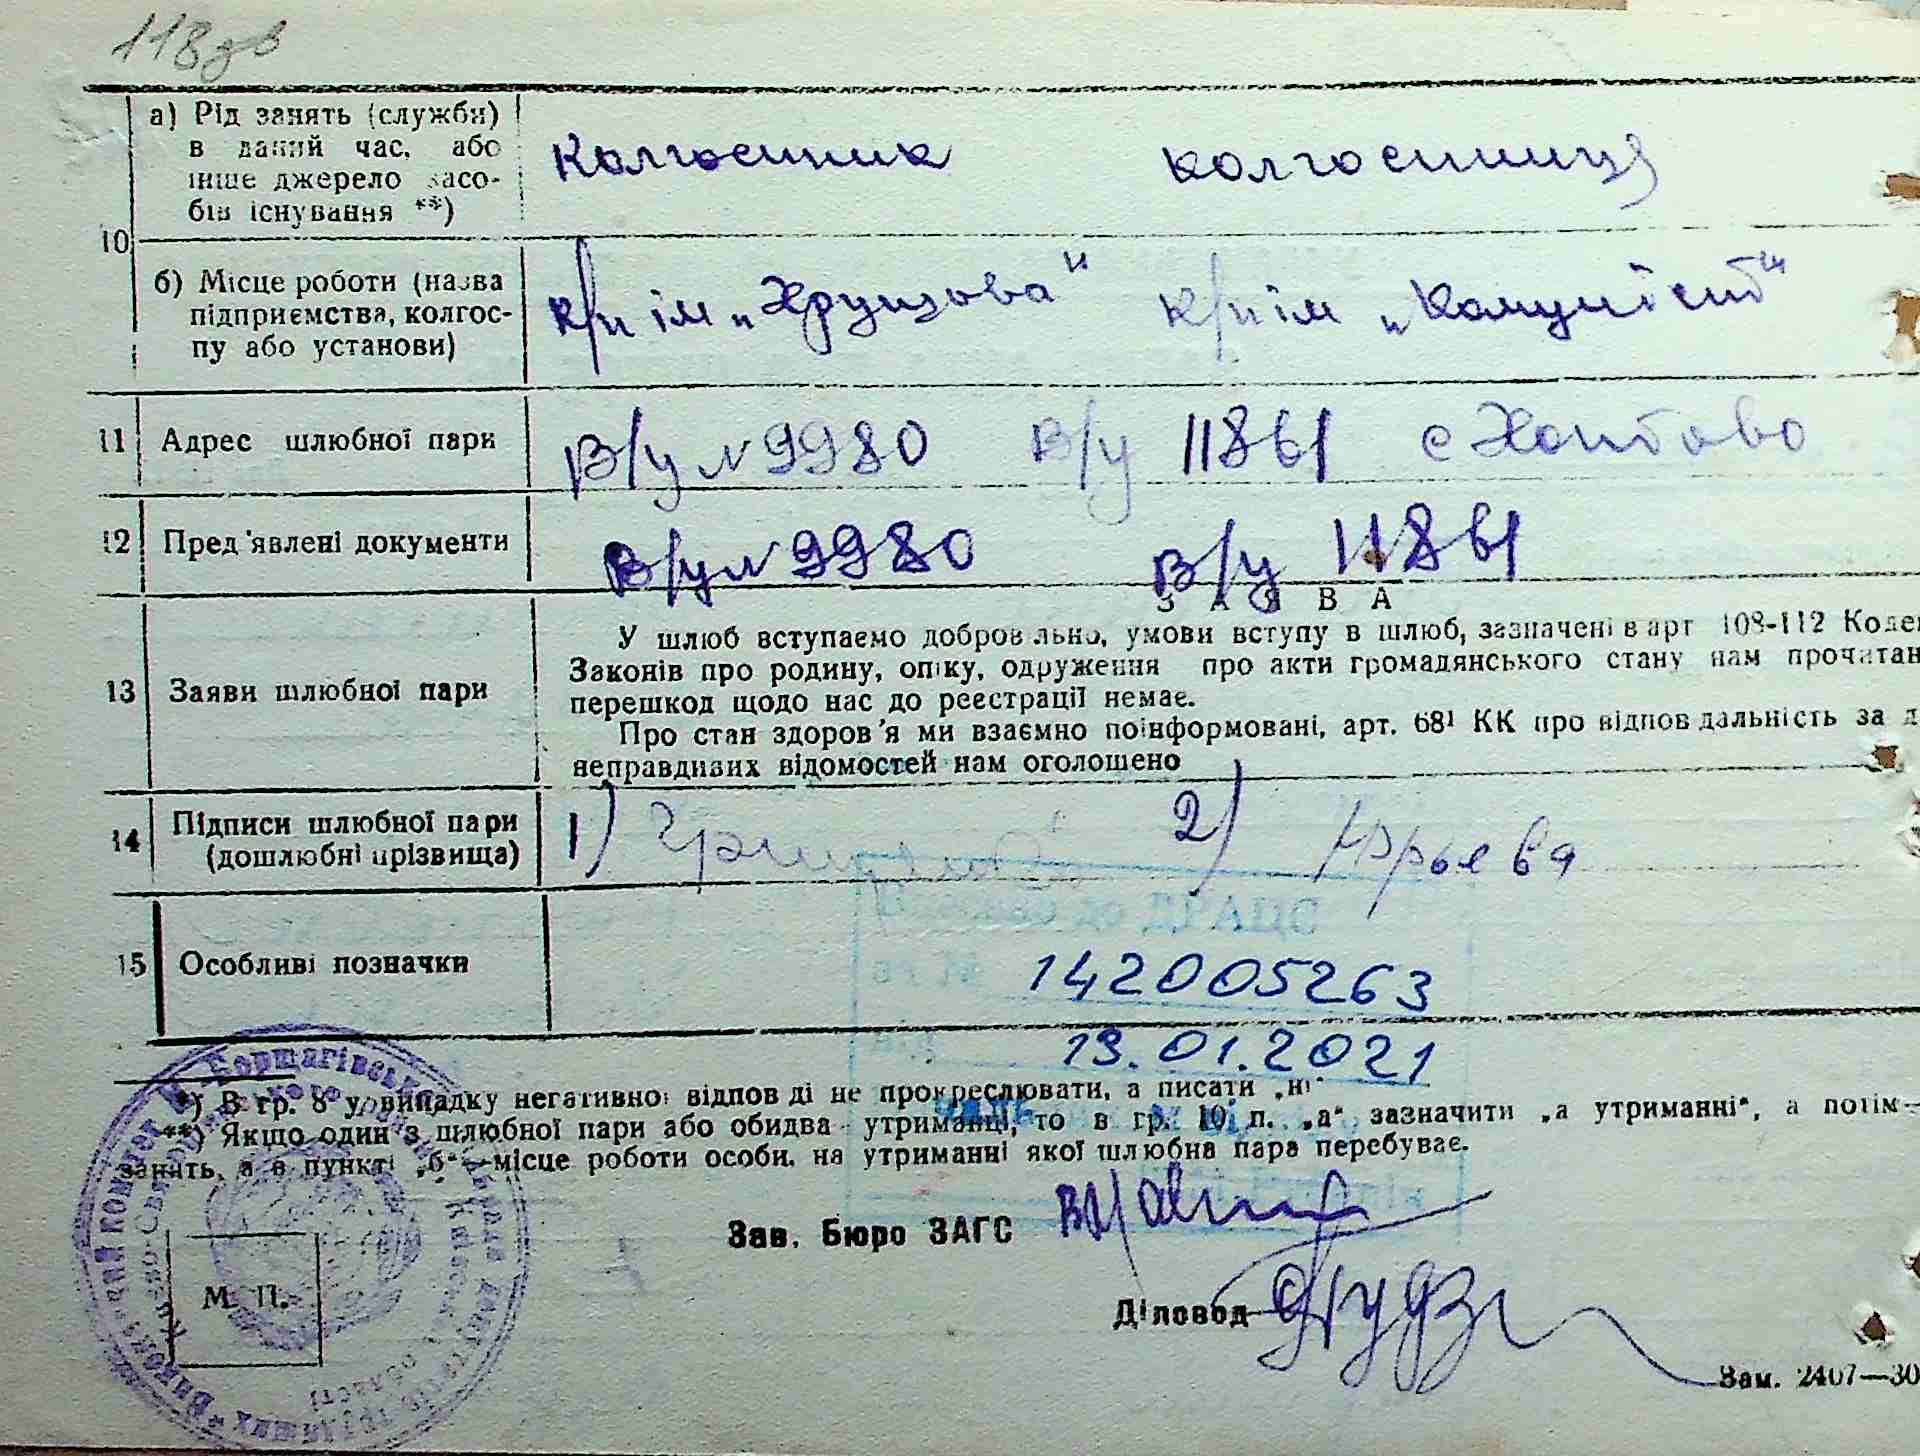 118 зв
а) Рід занять (служби)
в даний час, або
інше джерело засо-
бів існування **)
Колгоспник колгоспниця
10
б) Місце роботи (назва
підприємства, колгос-
пу або установи)
к/п ім „Хрущова" к/п ім „Комуніст"
11 Адрес шлюбної пари В/у № 9980 В/у 11861 с
12 Пред'явлені документи В/у № 9980 В/у 11861
ЗАЯВА
13 Заяви шлюбної пари
У шлюб вступаємо добровільно, умови вступу в шлюб, зазначені в арт 108-112 Коде
Законів про родину, опіку, одруження про акти громадянського стану нам прочитан
перешкод щодо нас до реєстрації немає.
Про стан здоров'я ми взаємно поінформовані, арт. 68¹ КК про відповідальність за д
неправдивих відомостей нам оголошено
14 Підписи шлюбної пари
(дошлюбні прізвища)
1) 2) Юрьева
до ДРАЦС
15 Особливі позначки
142005263
19.01.2021
*) В гр. 8 у випадку негативної відповіді не прокреслювати, а писати „ні"
**) Якщо один з шлюбної пари або обидва утриманці, то в гр. 10 п. „а" зазначити „а утриманні", а потім
занять, а в пункті „б"—місце роботи особи, на утриманні якої шлюбна пара перебуває.
Зав. Бюро ЗАГС
М. П.
Діловод
Зам. 2407—30